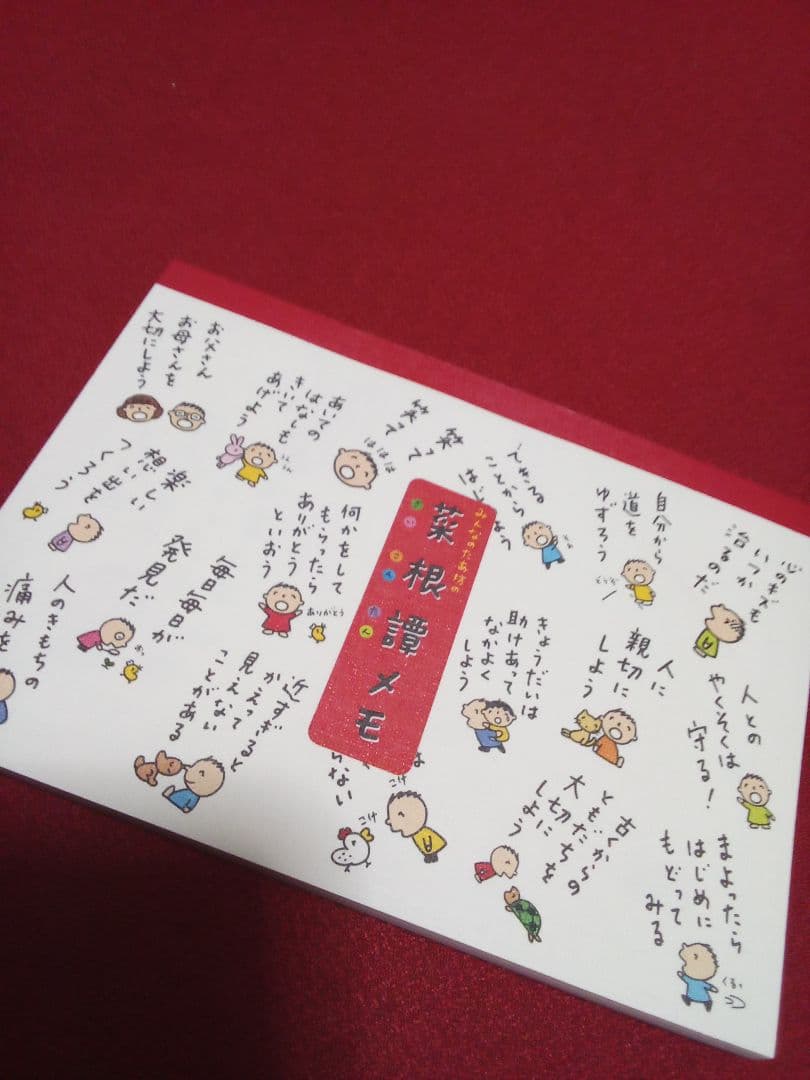 みんなのたあ坊の
菜根譚メモ
さい こん たん
心のキズも
いつか
治るのだ
自分から
道を
ゆずろう
どうぞ
できる
ことから
はじ
よう
笑って
笑って
ははは
あいての
はなしも
きいて
あげよう
うん
うん
お父さん
お母さんを
大切にしよう
人との
やくそくは
守る!
人に
親切に
しよう
きょうだいは
助けあって
なかよく
しよう
何かをして
もらったら
ありがとう
といおう
ありがとう
毎日毎日が
発見だ
楽しい
想い出を
つくろう
まよったら
はじめに
もどって
みる
くるっ
古くからの
ともだちを
大切に
しよう
らない
こけ
こけ
近すぎると
かえって
見えない
ことがある
人のきもちの
痛みを